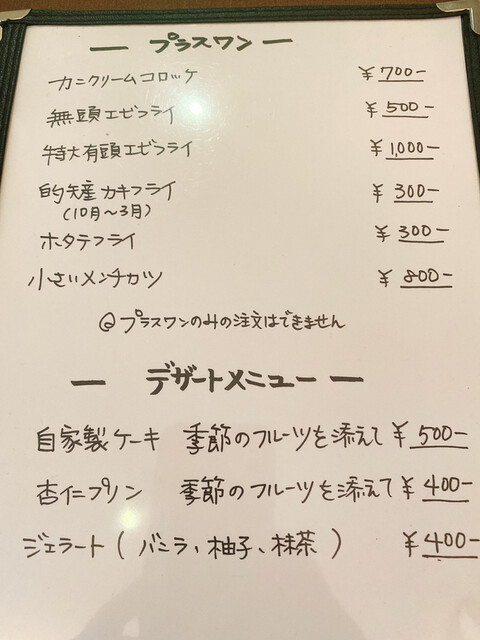 ー プラスワン ー
カニクリームコロッケ ¥700-
無頭エビフライ ¥500-
特大有頭エビフライ ¥1,000-
的矢産カキフライ ¥300-
(10月〜3月)
ホタテフライ ¥300-
小さいメンチカツ ¥800-
◎プラスワンのみの注文はできません
ー デザートメニュー ー
自家製ケーキ 季節のフルーツを添えて ¥500-
杏仁プリン 季節のフルーツを添えて ¥400-
ジェラート(バニラ、柚子、抹茶) ¥400-